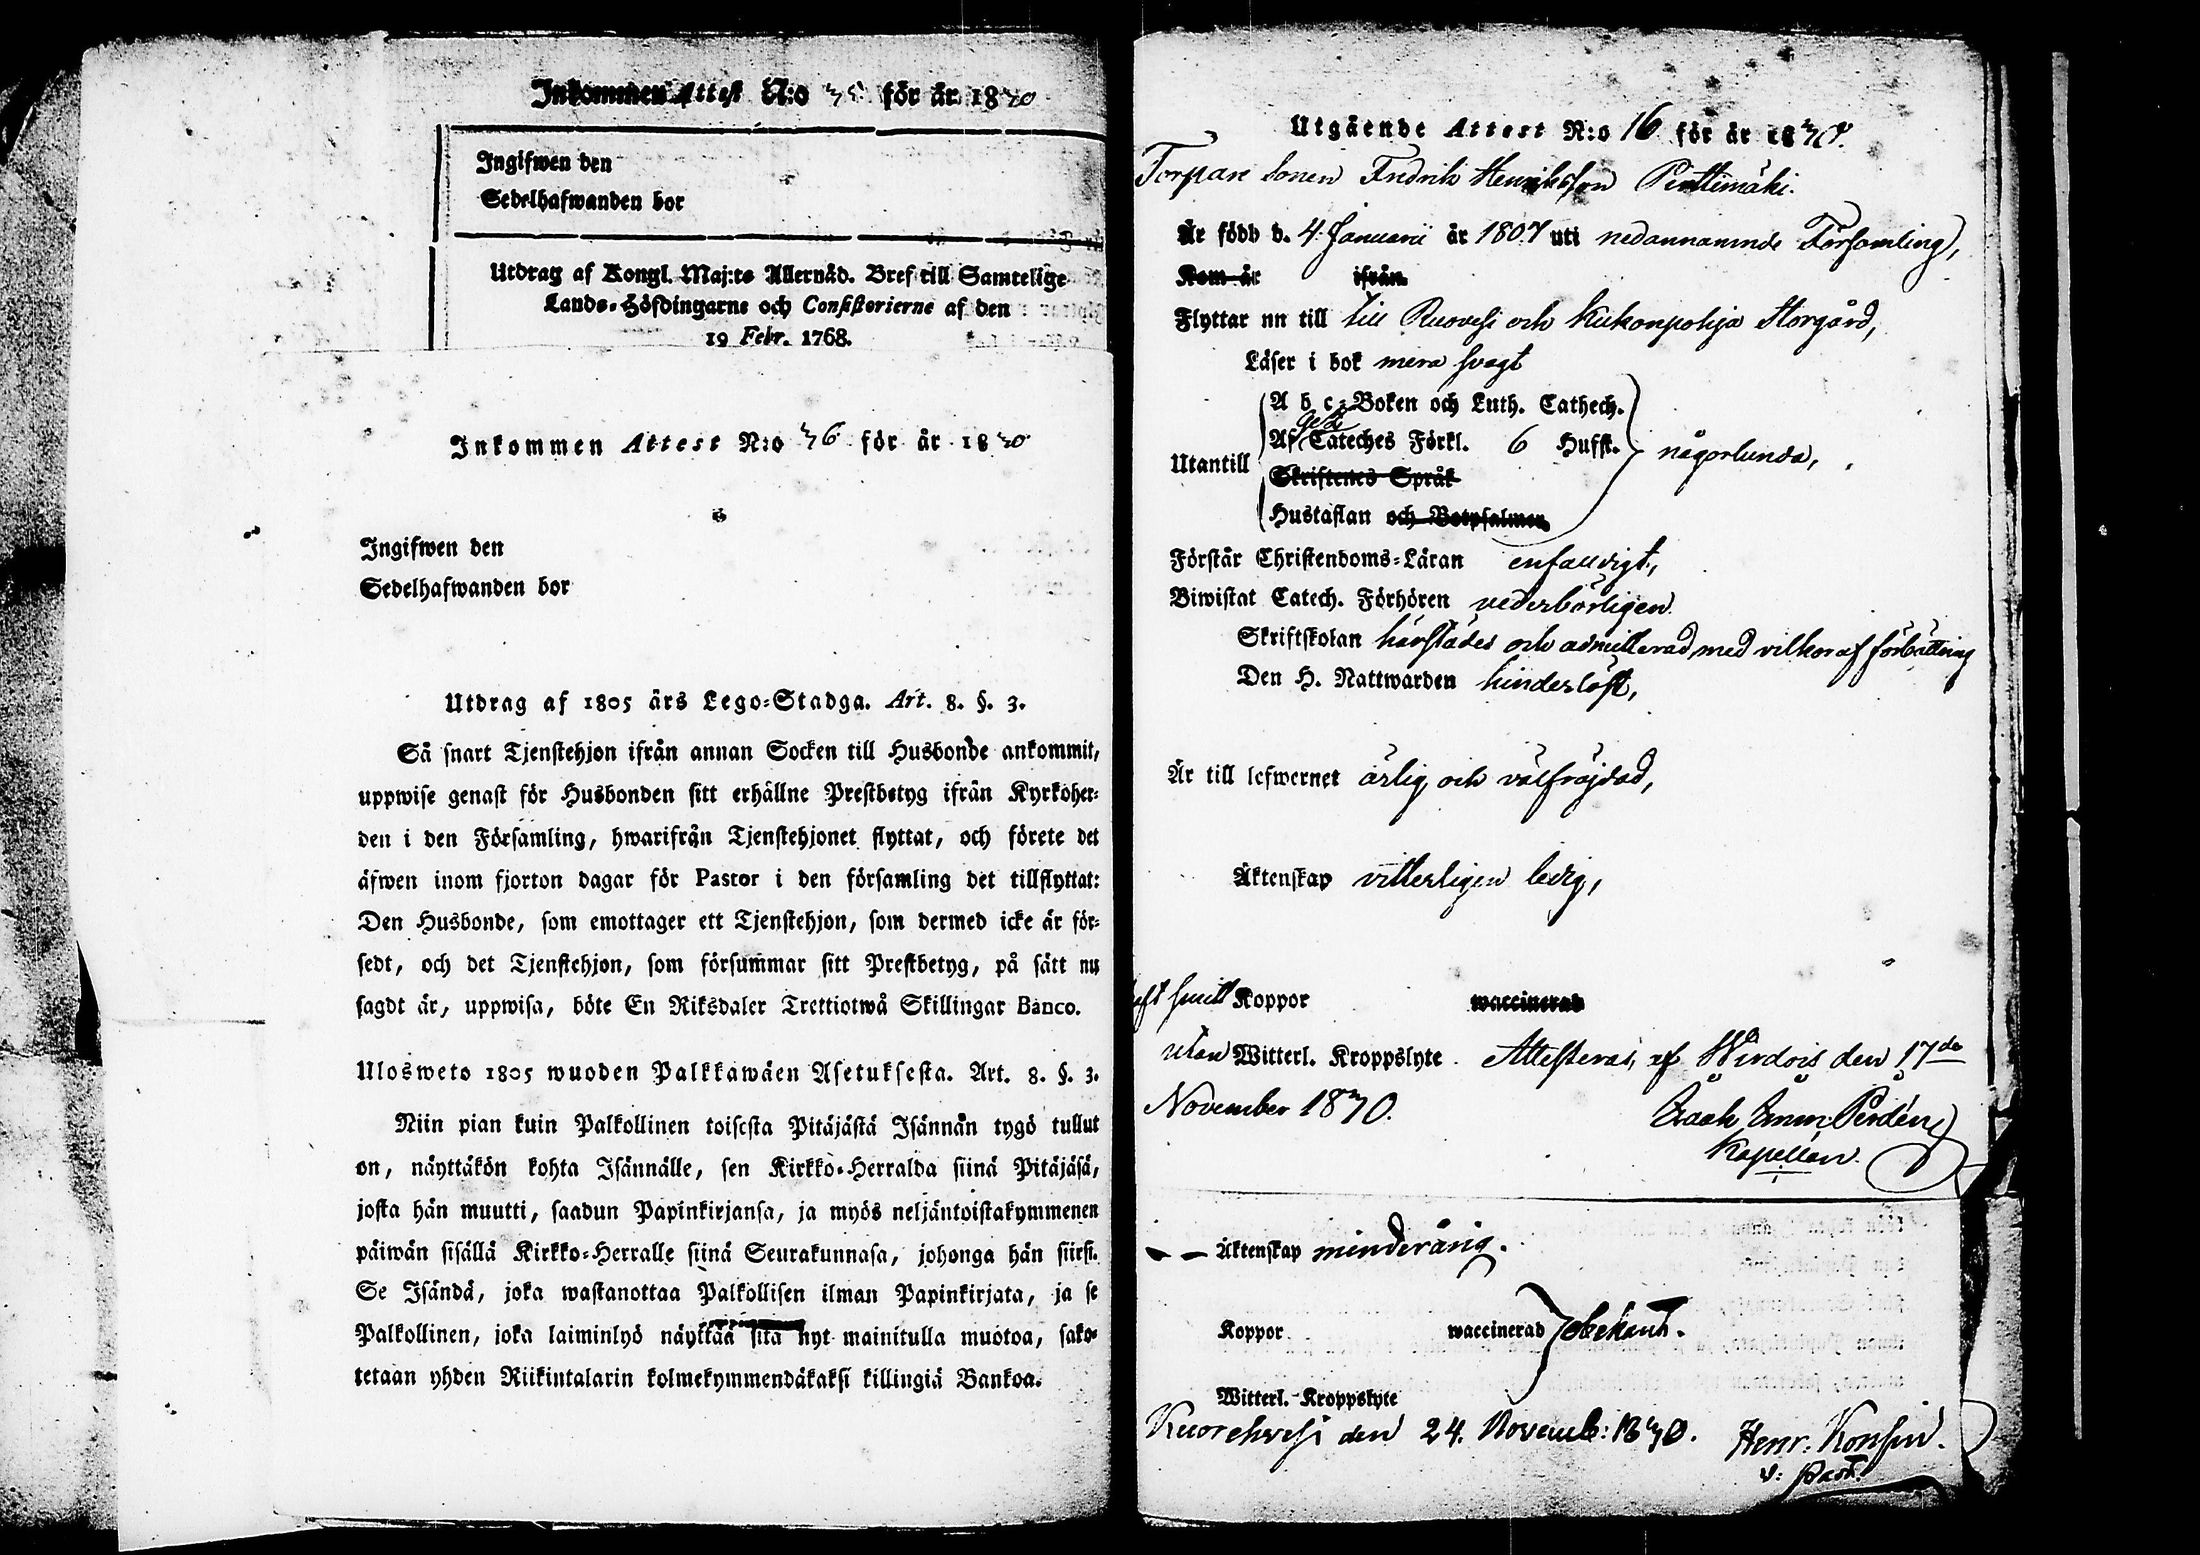 Inkommen Attest N:o 35 för år 1830
Ingifwen den
Sedelhafwanden bor
Utdrag af Kongl. Maj:ts Allernåd. Bref till Samtelige
Lands-Höfdingarne och Consistorierne af den
19 Febr. 1768.
Inkommen Attest N:o 36 för år 1830
Ingifwen den
Sedelhafwanden bor
Utdrag af 1805 års Lego-Stadga. Art. 8. §. 3.
Så snart Tjenstehjon ifrån annan Socken till Husbonde ankommit,
uppwise genast för Husbonden sitt erhållne Prestbetyg ifrån Kyrkoher-
den i den Församling, hwarifrån Tjenstehjonet flyttat, och förete det
äfwen inom fjorton dagar för Pastor i den församling det tillflyttat:
Den Husbonde, som emottager ett Tjenstehjon, som dermed icke är för-
sedt, och det Tjenstehjon, som försummar sitt Prestbetyg, på sätt nu
sagdt är, uppwisa, böte En Riksdaler Trettiotwå Skillingar Banco.
Ulosweto 1805 wuoden Palkkawäen Asetuksesta. Art. 8. §. 3.
Niin pian kuin Palkollinen toisesta Pitäjästä Isännän tygö tullut
on, näyttäkön kohta Isännälle, sen Kirkko-Herralda siinä Pitäjäsä,
josta hän muutti, saadun Papinkirjansa, ja myös neljäntoistakymmenen
päiwän sisällä Kirkko-Herralle siinä Seurakunnasa, johonga hän siirsi.
Se Isändä, joka wastanottaa Palkollisen ilman Papinkirjata, ja se
Palkollinen, joka laiminlyö näyttää sitä nyt mainitulla muotoa, sako-
tetaan yhden Riikintalarin kolmekymmendäkaksi killingiä Bankoa.
Utgående Attest N:o 16 för år 1830.
Torpare Sonen Fredrik Henriksson Penttimäki.
Är född d. 4 Januarii år 1807 uti nedannämnde Församling,
Kom år ifrån
Flyttar nu till till Ruovesi och Kukonpohja Storgård,
Läser i bok mera svagt
A b c-Boken och Luth. Cathech.
Af Cateches Förkl. 6 Hufst. någorlunda,
Utantill
Skriftenes Språk
Hustaflan och Botpsalmen
Förstår Christendoms-Läran enfaldigt,
Biwistat Catech. Förhören vederbörligen.
Skriftskolan härstädes och admitterad med vilkor af förbättring
Den H. Nattwarden hinderlöst,
Är till lefwernet ärlig och välfräjdad,
Äktenskap vitterligen ledig,
haft smitt Koppor waccinerad
utan Witterl. Kroppslyte Attesteras, af Wirdois den 17de
November 1830.
Isach Emin: Perdén,
Kapellan.
Äktenskap minderårig.
Koppor waccinerad obekant.
Witterl. Kroppslyte
Kuorehvesi den 24. Novemb: 1830. Henr: Konsin.
v: Past.